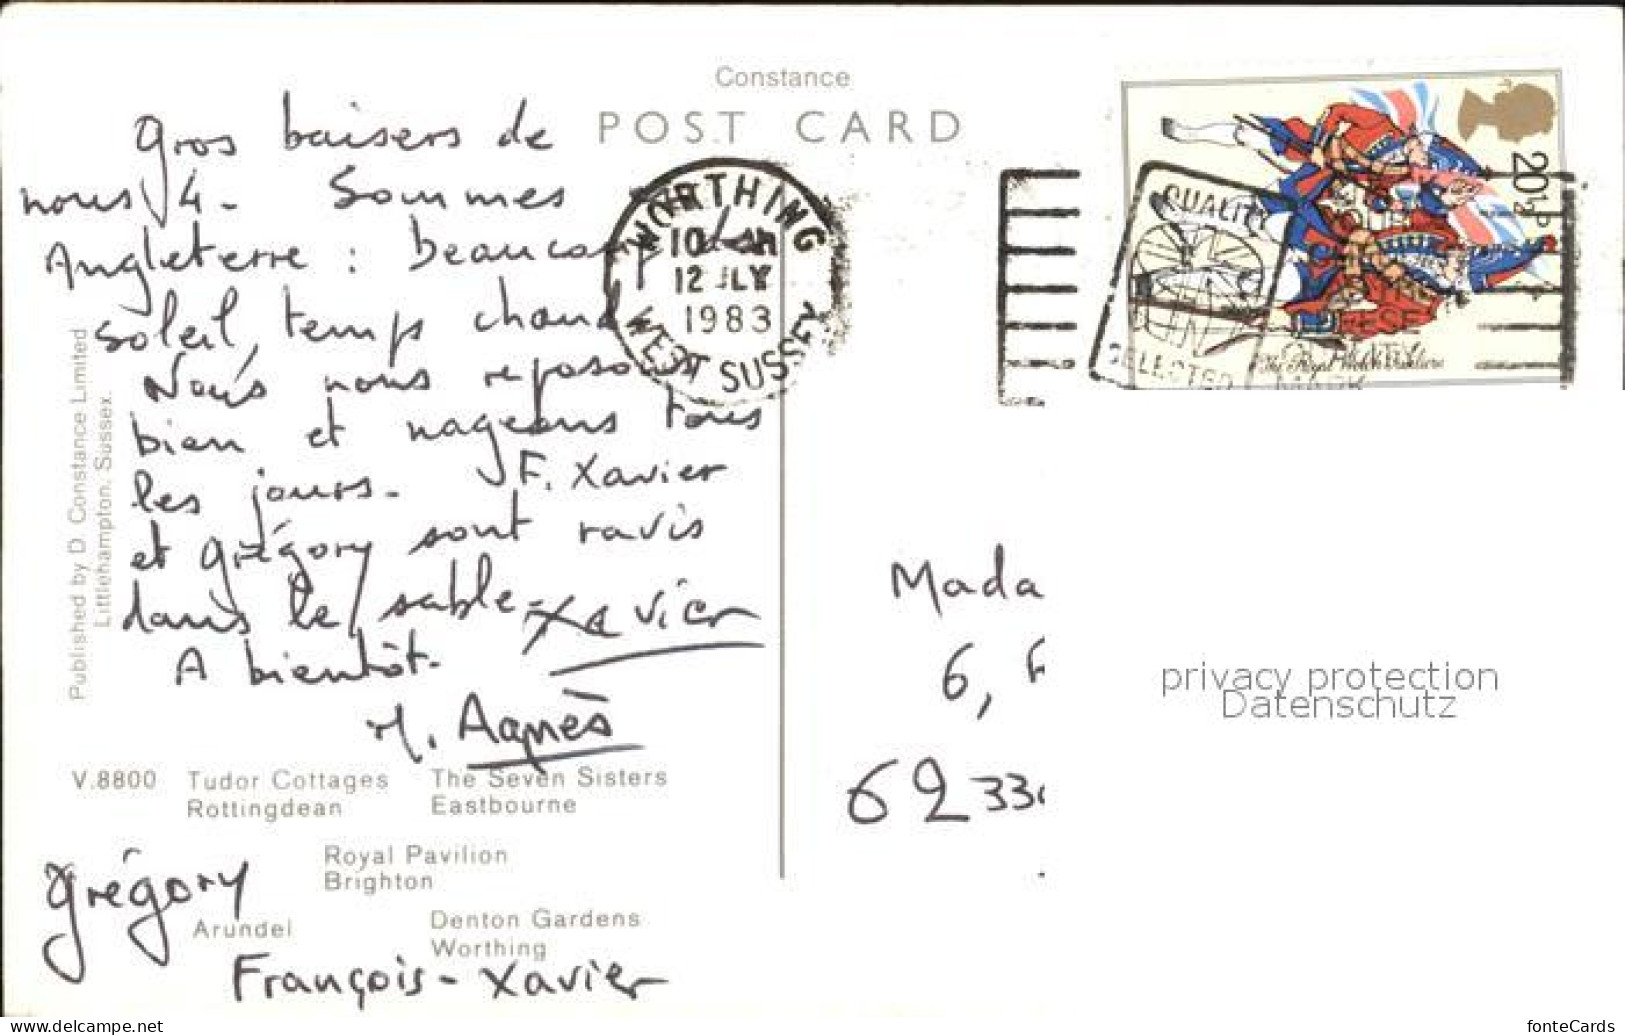 Constance
POST CARD
Gros baisers de
nous 4. Sommes
Angleterre : beaucoup de
soleil, temps chaud
Nous nous reposons
bien et nageons tous
les jours. F. Xavier
et Grégory sont ravis
dans le sable.
Xavier
A bientôt.
M. Agnès
Grégory
François-Xavier
Published by D Constance Limited
Littlehampton, Sussex.
V.8800
Tudor Cottages
Rottingdean
The Seven Sisters
Eastbourne
Royal Pavilion
Brighton
Arundel
Denton Gardens
Worthing
WORTHING
12 JLY
1983
WEST SUSSEX
QUALITY
SELECTED
20½P
The Royal Welch Fusiliers
Mada
6,
62330
privacy protection
Datenschutz
https://www.delcampe.net
fonteCards